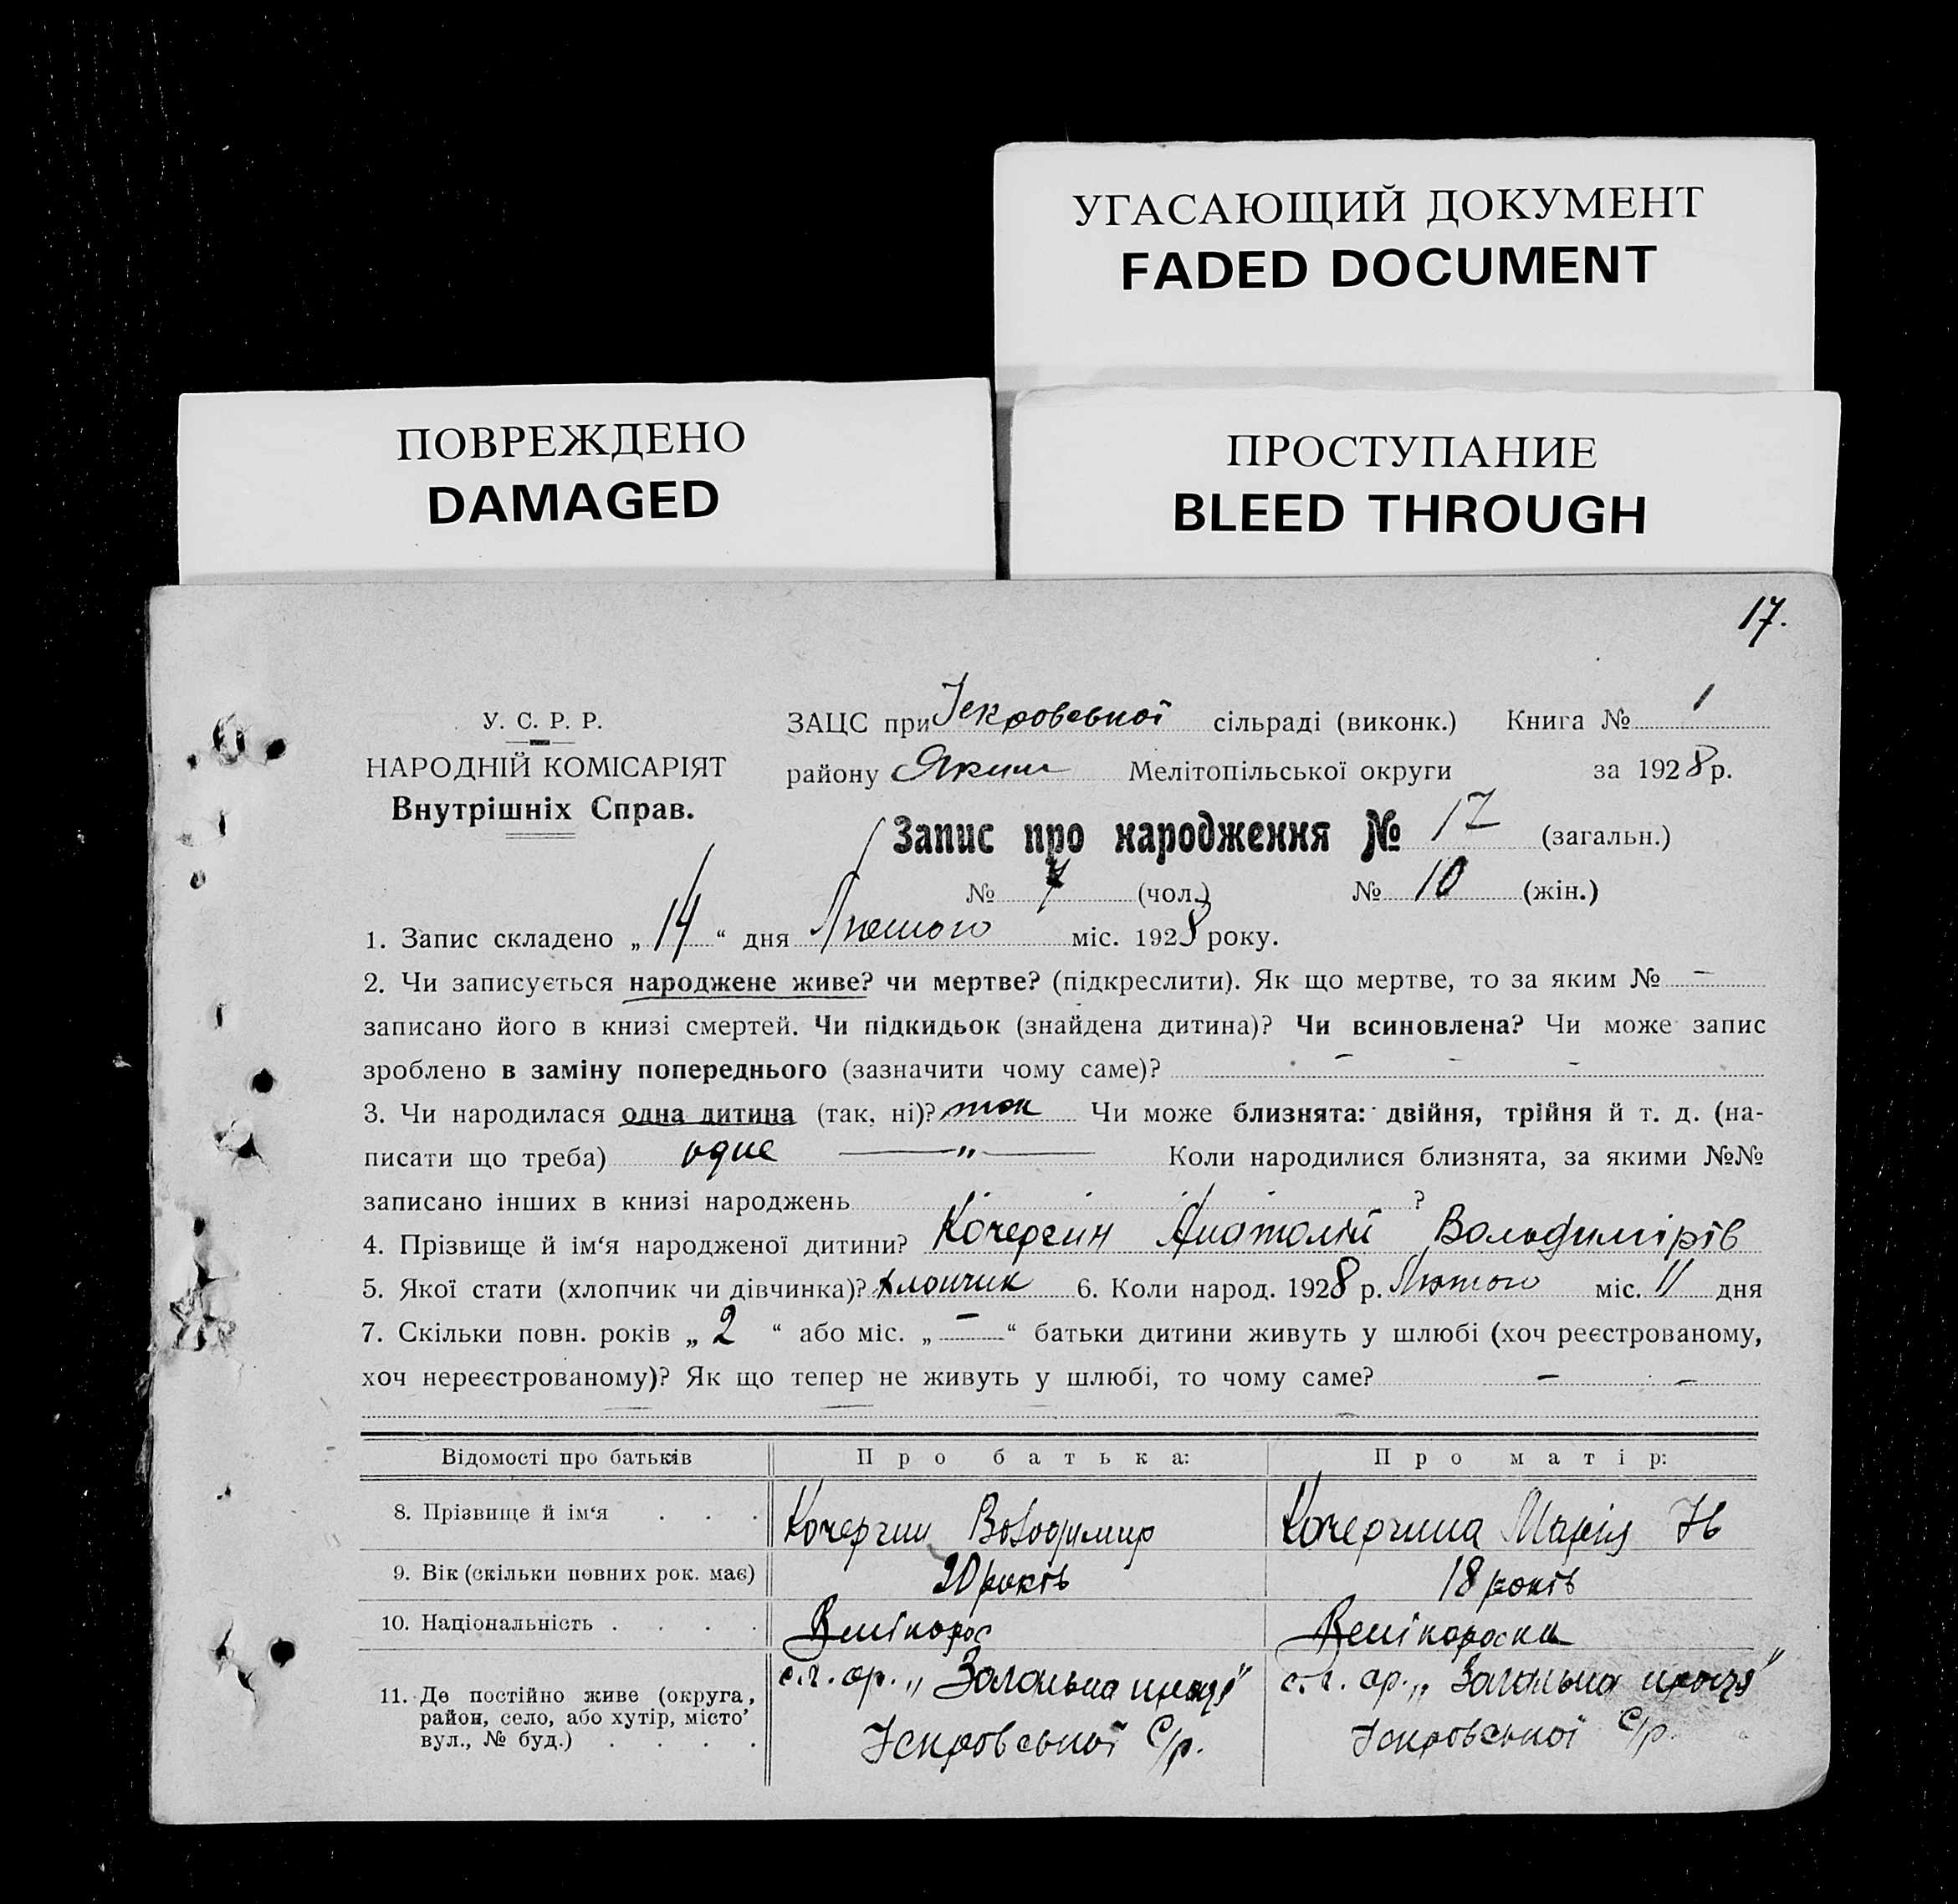 УГАСАЮЩИЙ ДОКУМЕНТ
FADED DOCUMENT
ПОВРЕЖДЕНО
DAMAGED
ПРОСТУПАНИЕ
BLEED THROUGH
17.
У. С. Р. Р.
НАРОДНІЙ КОМІСАРІЯТ
Внутрішніх Справ.
ЗАЦС при Іскровської сільраді (виконк.) Книга № 1
району Яким Мелітопільської округи за 1928 р.
Запис про народження № 17 (загальн.)
№ 7 (чол.) № 10 (жін.)
1. Запис складено „ 14 “ дня Лютого міс. 1928 року.
2. Чи записується народжене живе? чи мертве? (підкреслити). Як що мертве, то за яким № –
записано його в книзі смертей. Чи підкидьок (знайдена дитина)? Чи всиновлена? Чи може запис
зроблено в заміну попереднього (зазначити чому саме)? – – –
3. Чи народилася одна дитина (так, ні)? так Чи може близнята: двійня, трійня й т. д. (на-
писати що треба) одне —„— Коли народилися близнята, за якими №№
записано інших в книзі народжень ?
4. Прізвище й ім‘я народженої дитини? Кочергин Анатолій Володимирів
5. Якої стати (хлопчик чи дівчинка)? хлопчик 6. Коли народ. 1928 р. Лютого міс. 11 дня
7. Скільки повн. років „ 2 “ або міс. „ – “ батьки дитини живуть у шлюбі (хоч реєстрованому,
хоч нереєстрованому)? Як що тепер не живуть у шлюбі, то чому саме? – –
Відомості про батьків Про батька: Про матір:
8. Прізвище й ім‘я . . . Кочергин Володимир Кочергина Марія Ів
9. Вік (скільки повних рок. має) 20 років 18 років
10. Національність . . . . Велікорос Велікороска
11. Де постійно живе (округа, с.г. ар. „Загальна праця“ с.г. ар. „Загальна праця“
район, село, або хутір, місто’
вул., № буд.) . . . . Іскровської с/р. Іскровської с/р.